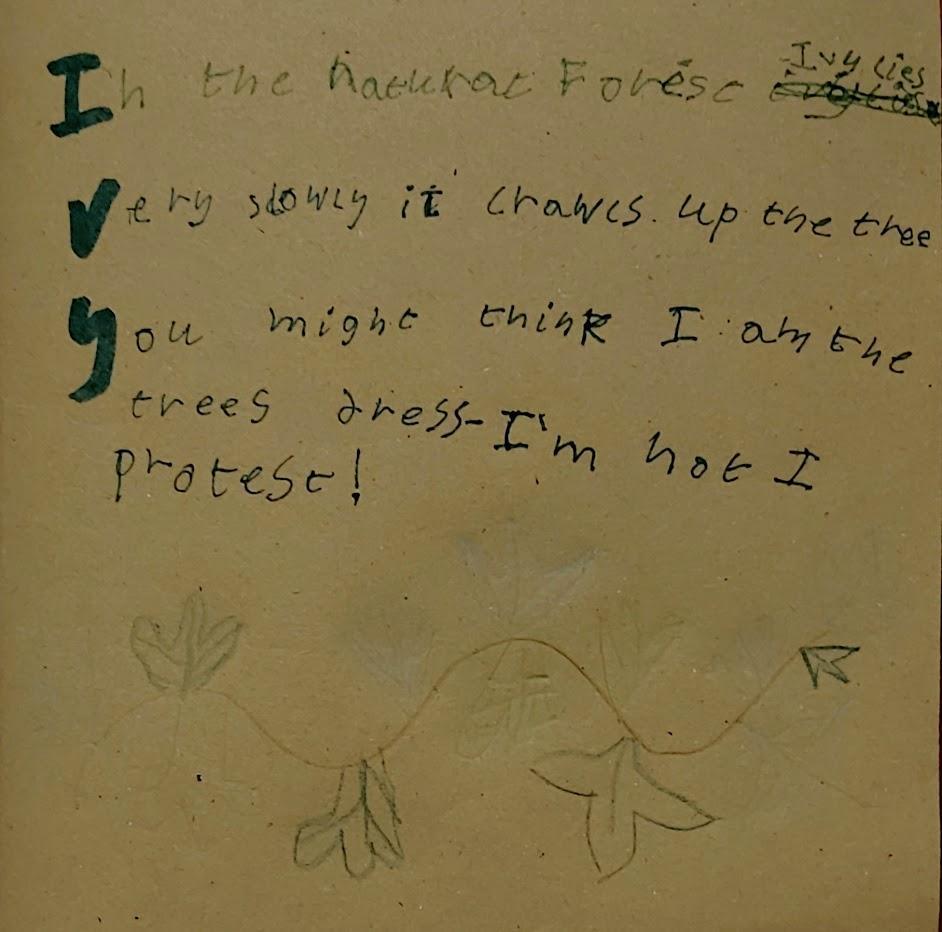 In the natural Forest Ivy lies
Very slowly it crawls. up the tree
You might think I am the
trees dress- I'm not I
protest!